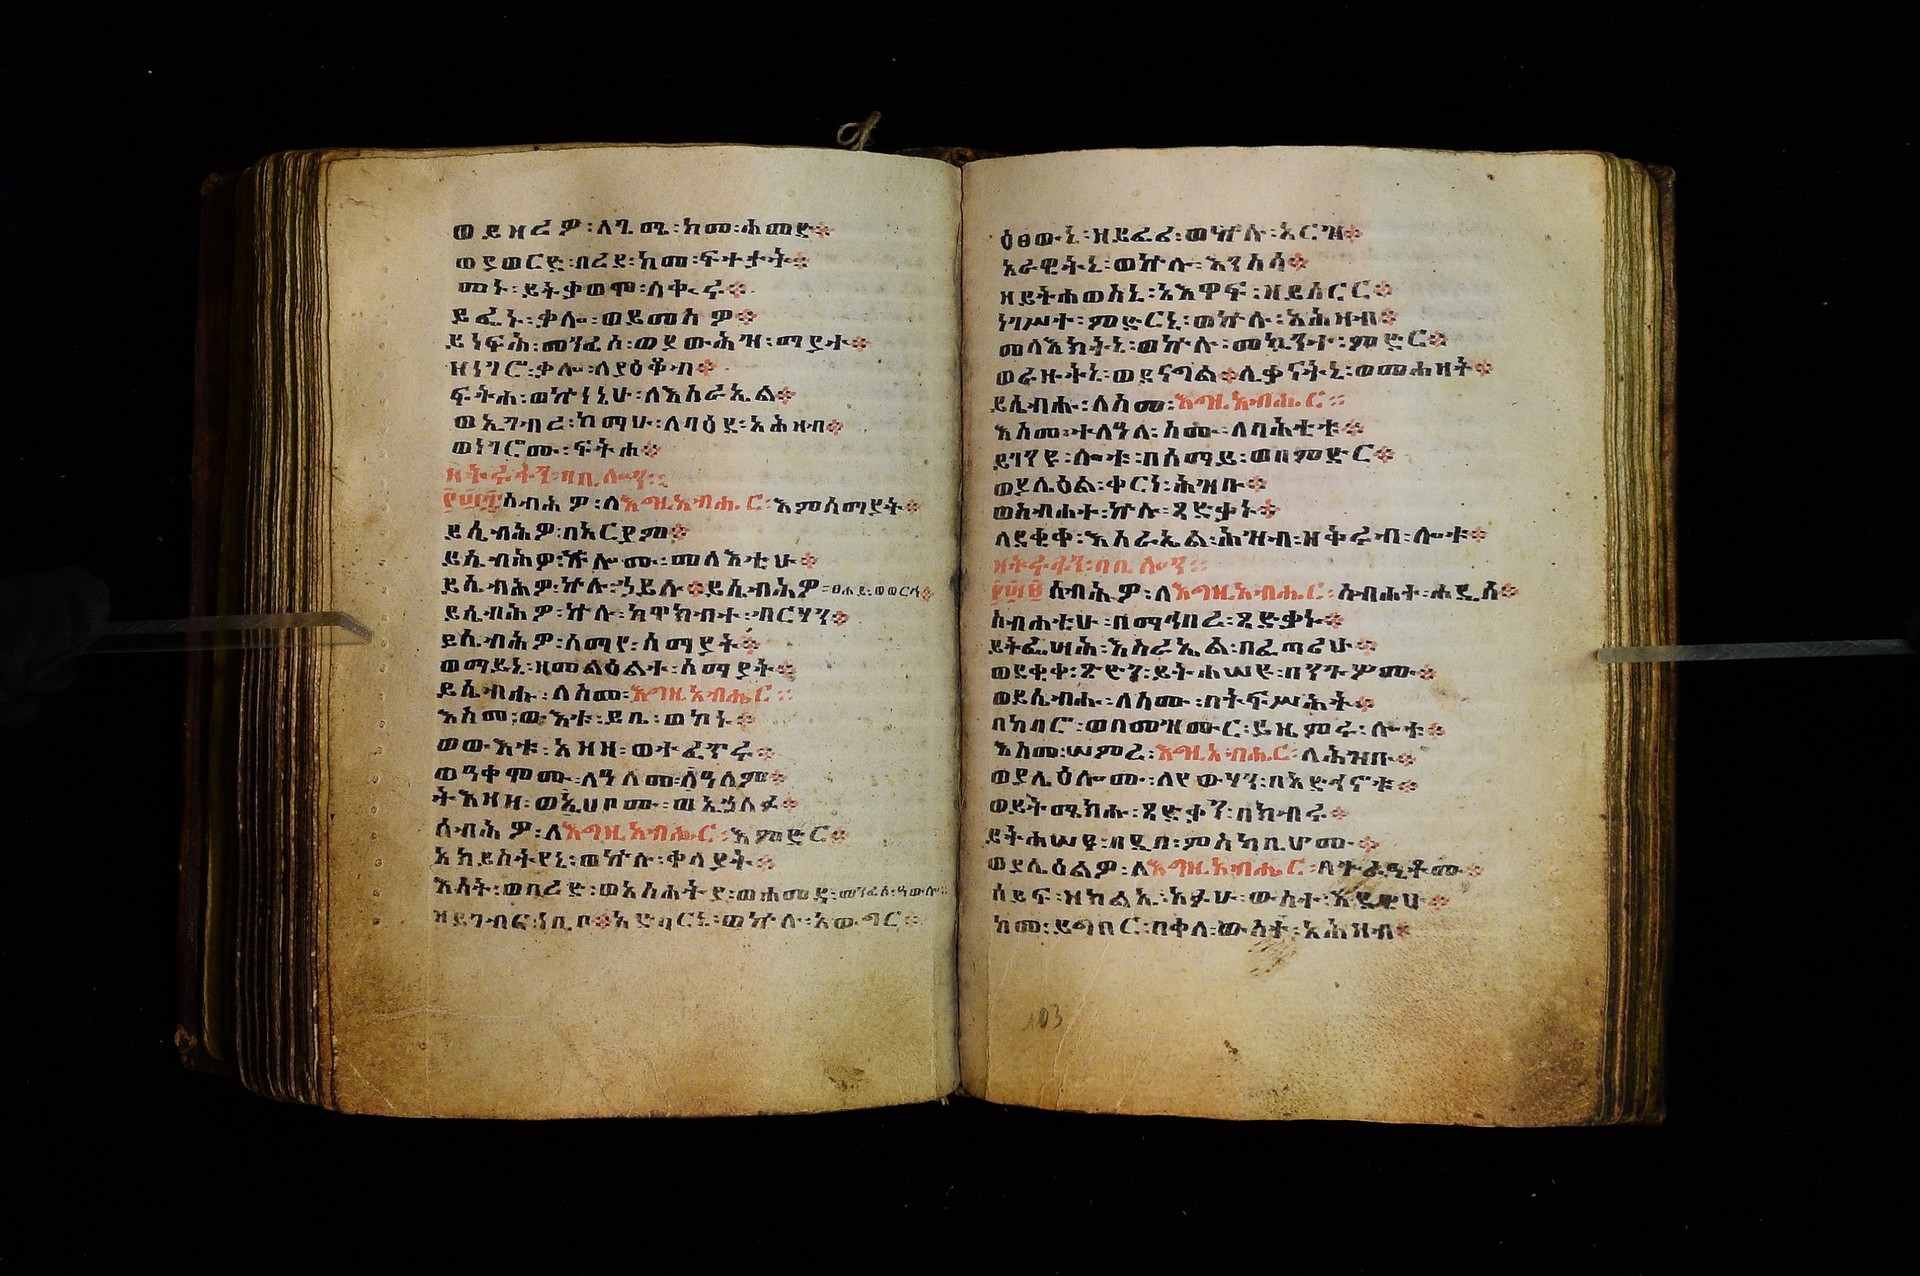 ወይዘረዎ፡ለጊሜ፡ከመ፡ሐመድ፨
ወያወርድ፡በረደ፡ከመ፡ፍተታት፨
መኑ፡ይትቃወሞ፡ለቍሩ፨
ይፌኑ፡ቃሎ፡ወይመስዎ፨
ይነፍሕ፡መንፈሰ፡ወያውሕዝ፡ማያተ፨
ዘነገሮ፡ቃሎ፡ለያዕቆብ፨
ፍትሐ፡ወኵነኔሁ፡ለእስራኤል፨
ወኢገብረ፡ከማሁ፡ለባዕደ፡አሕዛብ፨
ወነገሮሙ፡ፍትሐ፨
ዘትሩፋን፡ዘቢሎን።
፻፵፰ሰብሕዎ፡ለእግዚአብሔር፡እምሰማያት፨
ይሴብሕዎ፡በአርያም፨
ይሴብሕዎ፡ኵሎሙ፡መላእክቲሁ፨
ይሴብሕዎ፡ኵሉ፡ኃይሉ፨ይሴብሕዎ፡ፀሐይ፡ወወርኅ፨
ይሴብሕዎ፡ኵሉ፡ከዋክብት፡ብርሃን፨
ይሴብሕዎ፡ሰማየ፡ሰማያት፨
ወማይኒ፡ዘመልዕልተ፡ሰማያት፨
ይሴብሑ፡ለስመ፡እግዚአብሔር።
እስመ፡ውእቱ፡ይቤ፡ወኮኑ፨
ወውእቱ፡አዘዘ፡ወተፈጥሩ፨
ወዓቀሞሙ፡ለዓለመ፡ለዓለም፨
ትእዛዘ፡ወኢሀቦሙ፡ወኢኃለፈ፨
ሰብሕዎ፡ለእግዚአብሔር፡እምድር፨
አክይስትየኒ፡ወኵሉ፡ቀላያት፨
እሳት፡ወበረድ፡ወአስሐትያ፡ወሐመዳ፡መንፈሰ፡ዓውሎ፨
ዘይገብሩ፡ነቢቦ፨አድባርኒ፡ወኵሉ፡አውግር፨
ዕፀውኒ፡ዘይፈሪ፡ወኵሉ፡አርዝ፨
አራዊትኒ፡ወኵሉ፡እንስሳ፨
ዘይትሐወስኒ፡አእዋፍ፡ዘይሰርር፨
ነገሥተ፡ምድርኒ፡ወኵሉ፡አሕዛብ፨
መላእክትኒ፡ወኵሉ፡መኳንንተ፡ምድር፨
ወራዙትኒ፡ወደናግል፨ሊቃናትኒ፡ወመሐዘት፨
ይሴብሑ፡ለስመ፡እግዚአብሔር።
እስመ፡ተለዓለ፡ስሙ፡ለባሕቲቱ፨
ይገንዩ፡ሎቱ፡በሰማይ፡ወበምድር፨
ወያሌዕል፡ቀርነ፡ሕዝቡ፨
ወስብሐተ፡ኵሉ፡ጻድቃኑ፨
ለደቂቀ፡እስራኤል፡ሕዝብ፡ዘቅሩብ፡ሎቱ፨
ዘትሩፋን፡በቢሎን።
፻፵፱ሰብሕዎ፡ለእግዚአብሔር፡ስብሐተ፡ሐዲሰ፨
ስብሐቲሁ፡በማኅበረ፡ጻድቃኑ፨
ይትፌሣሕ፡እስራኤል፡በፈጣሪሁ፨
ወደቂቀ፡ጽዮን፡ይትሐሠዩ፡በንጉሦሙ፨
ወይሴብሑ፡ለስሙ፡በትፍሥሕት፨
በከበሮ፡ወበመዝሙር፡ይዜምሩ፡ሎቱ፨
እስመ፡ሠምረ፡እግዚአብሔር፡ለሕዝቡ፨
ወያሌዕሎሙ፡ለየውሃን፡በአድኅኖቱ፨
ወይትሜክሑ፡ጻድቃን፡በክብሩ፨
ይትሐሠዩ፡በዲበ፡ምስካቢሆሙ፨
ወያሌዕልዎ፡ለእግዚአብሔር፡በጕራዒቶሙ፨
ሰይፍ፡ዘክልኤ፡አፉሁ፡ውስተ፡እደዊሁ፨
ከመ፡ይግበር፡በቀለ፡ውስተ፡አሕዛብ፨
103